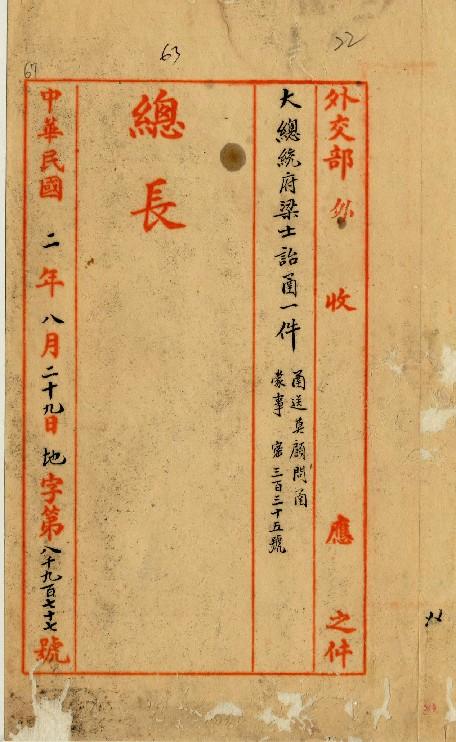 63
22
67
外交部 外 收 應 之件
大總統府梁士詒函一件
函送莫顧問函
蒙事 密 三百三十五號
總長
中華民國 二 年 八 月 二十九 日 地 字第 八千九百七十七 號